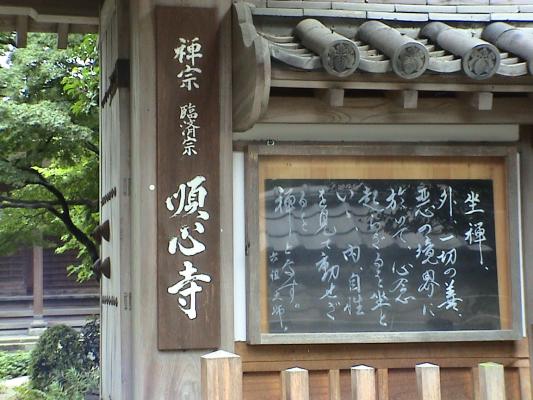 禅宗 臨済宗 順心寺
坐禅、
外、一切の善
悪の境界に
於いて心念
起らざるを坐と
いい、内、自性
を見て動ぜざ
るを
禅となす。
六祖大師